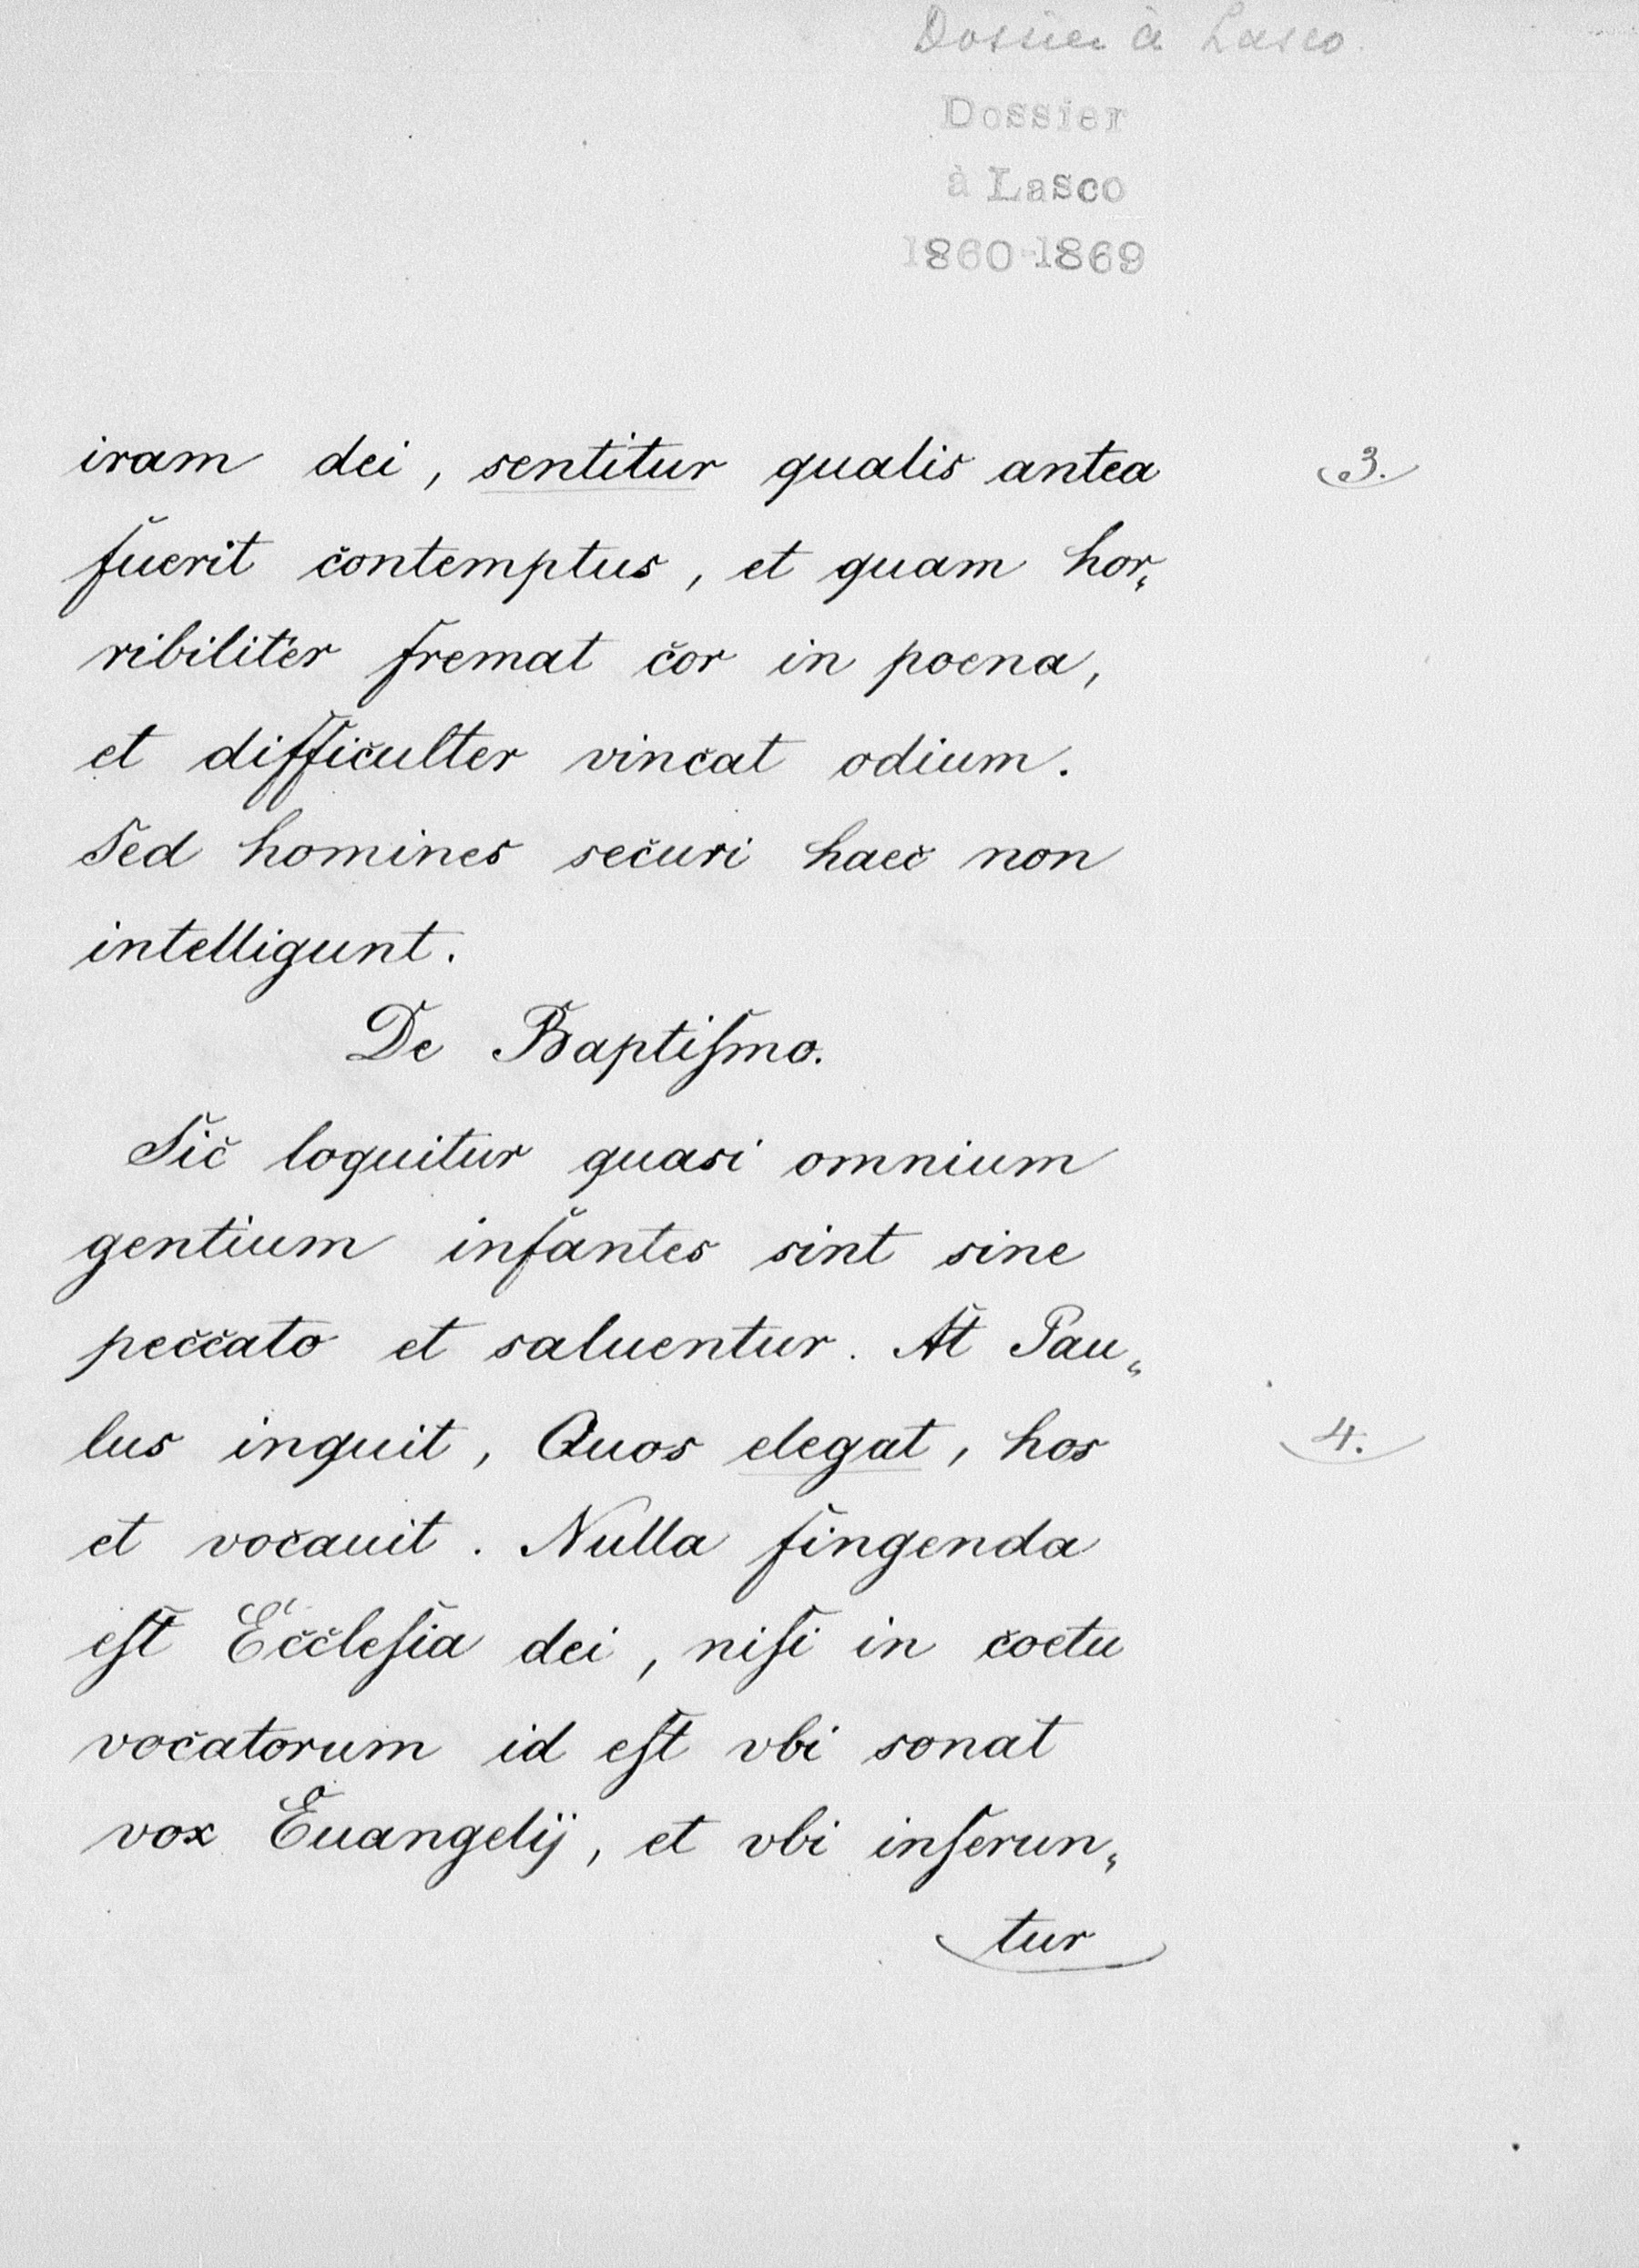 Dossier à Lasco.
Dossier
à Lasco
1860-1869
iram dei, sentitur qualis antea 3.
fuerit contemptus, et quam hor„
ribiliter fremat cor in poena,
et difficulter vincat odium.
Sed homines securi haec non
intelligunt.
De Baptiſmo.
Sic loquitur quasi omnium
gentium infantes sint sine
peccato et saluentur. At Pau„
lus inquit, Quos elegat, hos 4.
et vocauit. Nulla fingenda
eſt Eccleſia dei, niſi in coetu
vocatorum id eſt vbi sonat
vox Euangelij, et vbi inſerun„
tur